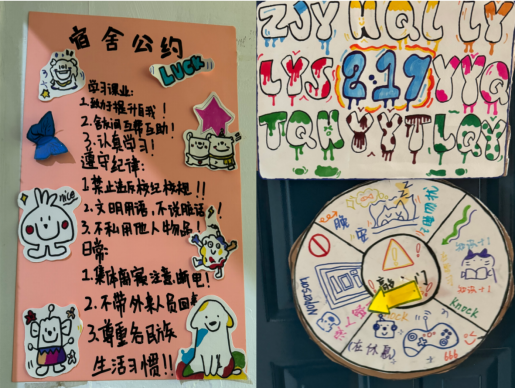 宿舍公约
LUCK
学习课业:
1.致力于提升自我!
2.舍友间互帮互助!
3.认真学习!
遵守纪律:
1.禁止违反校纪校规!!
2.文明用语,不说脏话!
3.不私用他人物品!
日常:
1.集体离寝注意断电!
2.不带外来人员回
3.尊重各民族
生活习惯!!
nice
ZJY HQL LY
LYS 217 YYQ
TQN YYT LQY
晚安
请勿扰
KNOCK
在休息
666